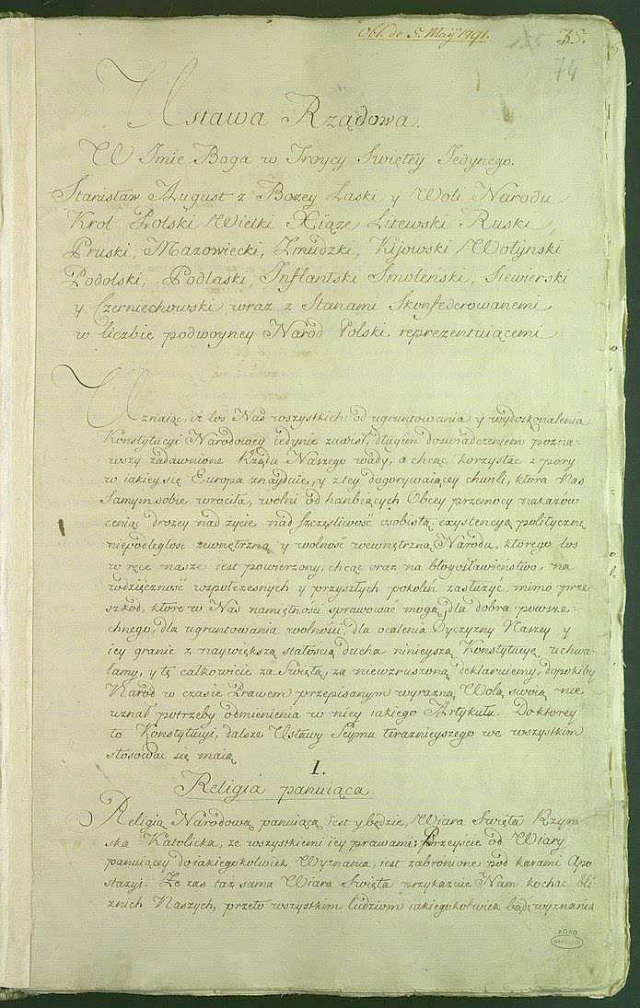 Obl. de 5. Maÿ 1791.
155 35.
74
Ustawa Rządowa.
W Imie Boga w Troycy Swiętey Iedynego.
Stanisław August z Bozey Łaski y Woli Narodu
Krol Polski Wielki Xiąze Litewski Ruski
Pruski, Mazowiecki, Zmudzki, Kijowski Wołyński
Podolski, Podlaski, Inflantski Smoleński, Siewierski
y Czerniechowski wraz z Stanami Skonfederowanemi
w liczbie podwoyney Naród Polski reprezentuiącemi
Uznaiąc, iż los Nas wszystkich od ugruntowania y wydoskonalenia
Konstytucyi Narodowey iedynie zawisł, długim doświadczeniem pozna-
wszy zadawnione Rządu Naszego wady, a chcąc korzystać z pory
w iakiey się Europa znayduie, y z tey dogorywaiącey chwili, która Nas
samym sobie wrociła, wolni od hanbiących Obcey przemocy nakazow
ceniąc drozey nad zycie nad szczęśliwość osobistą, exystencyą polityczną
niepodległość zewnętrzną y wolność wewnętrzną Narodu, ktorego los
w ręce nasze iest powierzony, chcąc oraz na błogosławieństwo, na
wdzięczność wspołczesnych y przyszłych pokoleń zasłużyć, mimo prze-
szkod, ktore w Nas namiętności sprawować mogą, dla dobra powsze-
chnego, dla ugruntowania wolności, dla ocalenia Oyczyzny Naszey y
iey granic z naywiększą stałością ducha ninieyszą Konstytucyą uchwa-
lamy, y tę całkowicie za Swiętą, za niewzruszoną deklaruiemy, dopokiby
Narod w czasie Prawem przepisanym wyrazną Wolą swoią nie
uznał potrzeby odmienienia w niey iakiego Artykułu. Do ktorey
to Konstytucyi, dalsze Ustawy Seymu teraznieyszego we wszystkim
stosować się maią.
I.
Religia panuiąca.
Religią Narodową panuiącą iest y będzie, Wiara Swięta Rzym-
ska Katolicka, ze wszystkiemi iey prawami; Przeyście od Wiary
panuiącey do iakiegokolwiek Wyznania, iest zabronione pod karami Apo-
stazyi. Ze zas taż sama Wiara Swięta przykazuie Nam kochać bli-
znich Naszych, przeto wszystkim ludziom iakiegokolwiek bądź wyznania
AGAD